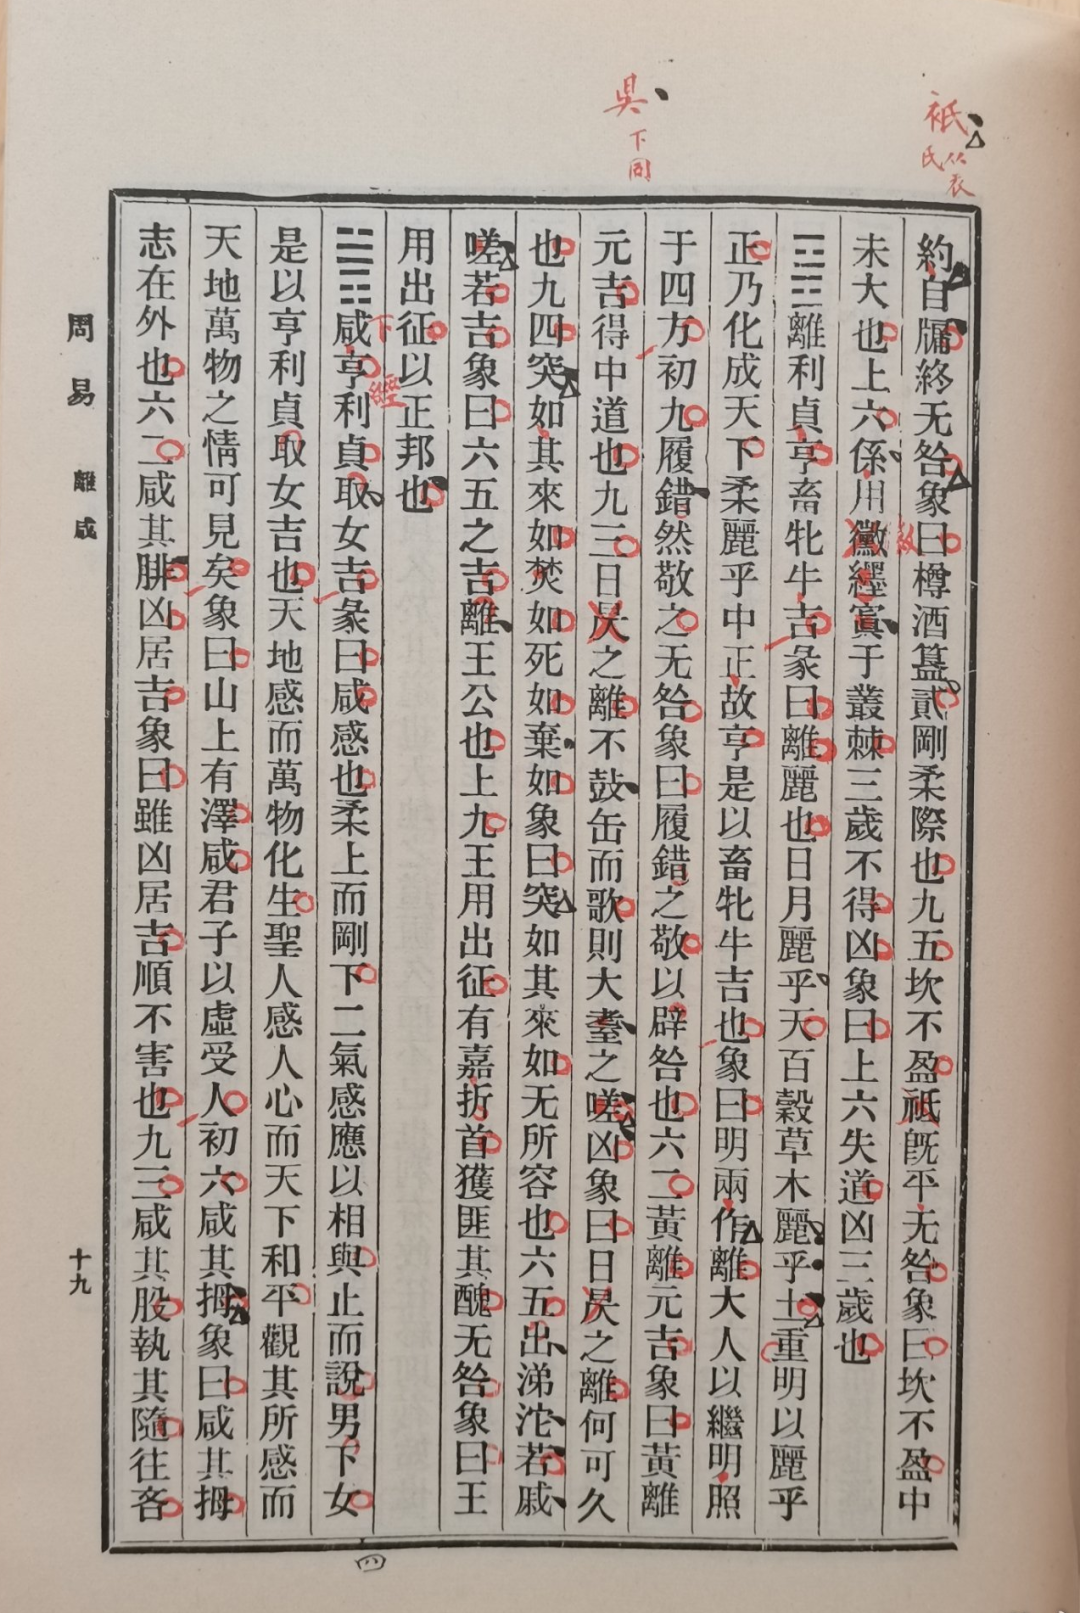 祇
从衣
氏
昃
下同
約自牖終无咎象曰樽酒簋貳剛柔際也九五坎不盈祗旣平无咎象曰坎不盈中
未大也上六係用黴纆寘于叢棘三歲不得凶象曰上六失道凶三歲也
徽
☲☲離利貞亨畜牝牛吉彖曰離麗也日月麗乎天百穀草木麗乎土重明以麗乎
正乃化成天下柔麗乎中正故亨是以畜牝牛吉也象曰明兩作離大人以繼明照
于四方初九履錯然敬之无咎象曰履錯之敬以辟咎也六二黃離元吉象曰黃離
元吉得中道也九三日昃之離不鼓缶而歌則大耋之嗟凶象曰日昃之離何可久
也九四突如其來如焚如死如棄如象曰突如其來如无所容也六五出涕沱若戚
嗟若吉象曰六五之吉離王公也上九王用出征有嘉折首獲匪其醜无咎象曰王
用出征以正邦也
下經
☱☶咸亨利貞取女吉彖曰咸感也柔上而剛下二氣感應以相與止而說男下女
是以亨利貞取女吉也天地感而萬物化生聖人感人心而天下和平觀其所感而
天地萬物之情可見矣象曰山上有澤咸君子以虛受人初六咸其拇象曰咸其拇
志在外也六二咸其腓凶居吉象曰雖凶居吉順不害也九三咸其股執其隨往吝
周易 離 咸
十九
四